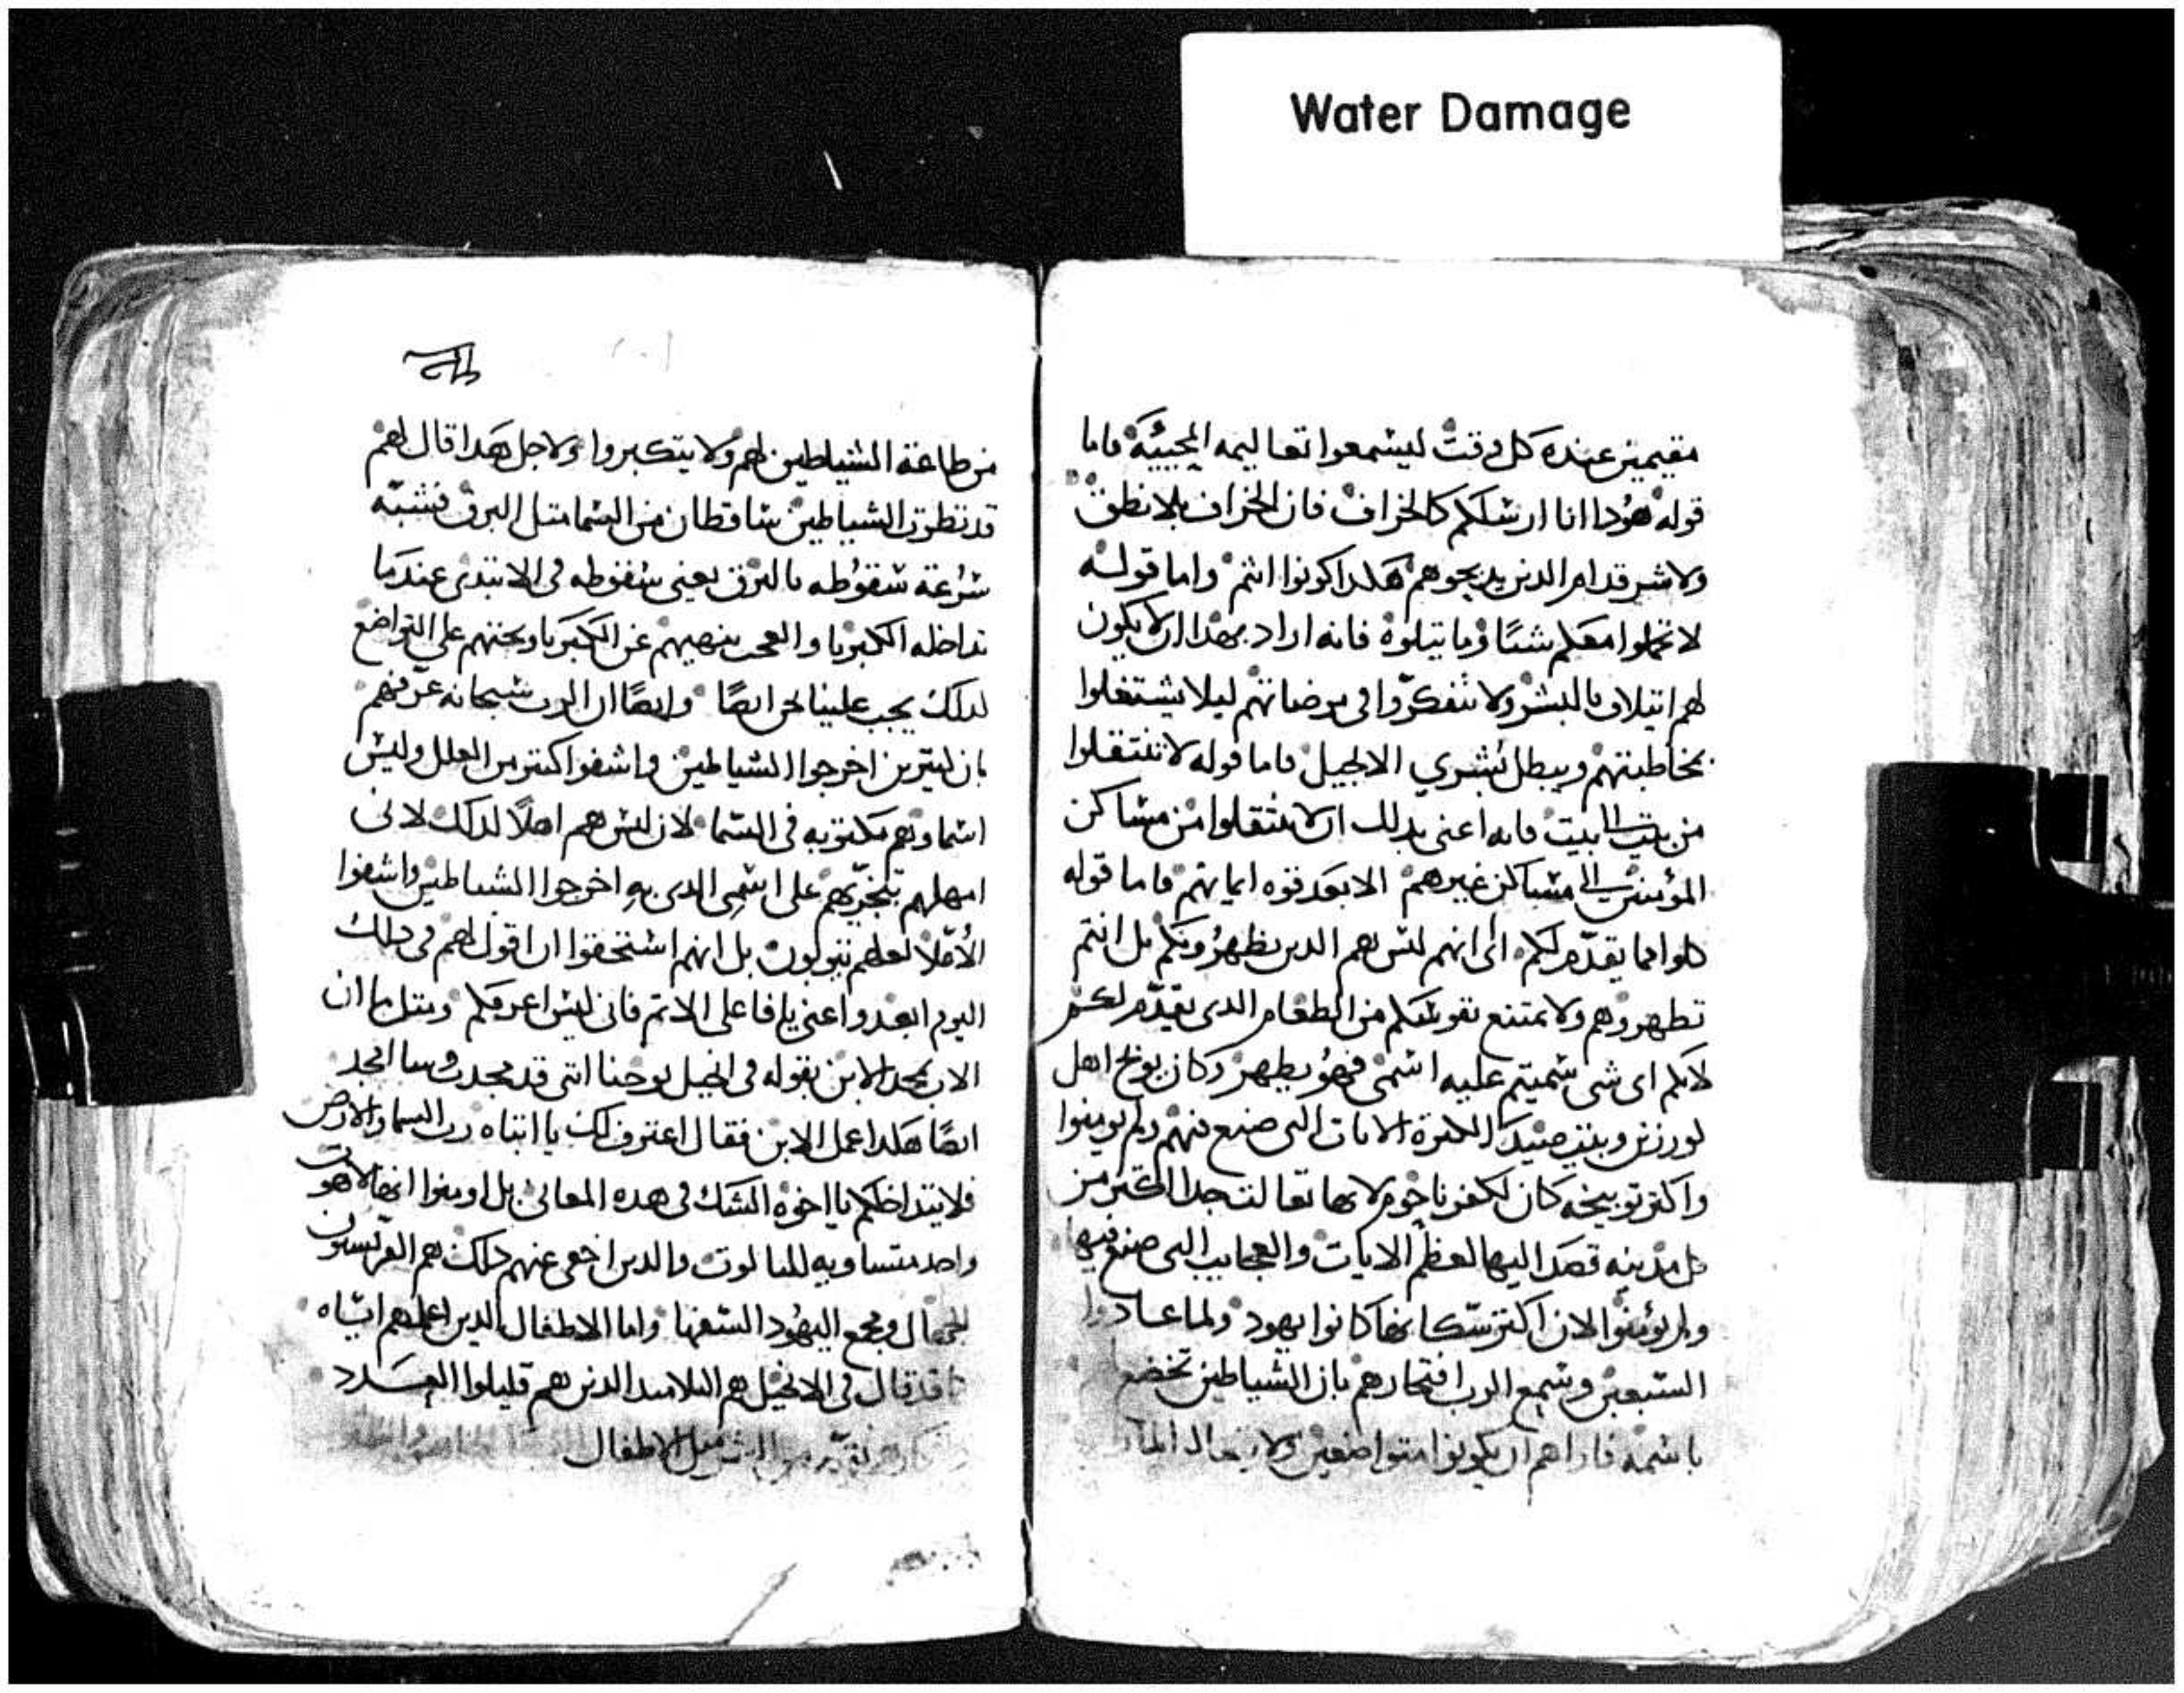 Water Damage
مقيمين عنده كل وقت ليسمعوا تعاليمه المحييه فاما
قوله هودا انا ارسلكم كالخراف فان الخراف بلا نطق
ولا شر قدام الدين يدبحوهم هكدا كونوا انتم واما قوله
لا تحملوا معكم شيًا وما يتلوه فانه اراد بهدا ان لا يكون
لهم ايتلاف بالبشر ولا تتفكروا في مرضاتهم ليلا يشتغلوا
بمخاطبتهم ويبطل بشري الانجيل فاما قوله لا تنتقلوا
من بيت الى بيت فانه اعنى بدلك ان لا ينتقلوا من مساكن
المؤمنين الى مساكن غيرهم الا بعد قوه ايمانهم فاما قوله
كلوا مما يقدّم لكم اى انهم ليس هم الدين يطهرونكم بل انتم
تطهروهم ولا تمتنع نفوسكم من الطعام الدى يقدّم لكم
لانكم اى شى سميتم عليه اسمى فهو يطهر وكان يوبخ اهل
كورزين وبيت صيدا لكترة الايات التى صنع فيهم ولم يومنوا
واكتر توبيخه كان لكفرناحوم لانها تعالت جدا اكتر من
كل مدينه قصد اليها لعظم الايات والعجايب التى صنع فيها
ولم يؤمنوا لان اكتر سكانها كانوا يهود ولما عادوا
السبعين وسمع الرب افتخارهم بان الشياطين تخضع
باسمه فاراهم ان يكونوا متواضعين ولا
من طاعة الشياطين لهم ولا يتكبروا ولاجل هدا قال لهم
قد نظرت الشياطين ساقطان من السما متل البرق فشبّه
سرعة سقوطه بالبرق يعنى سقوطه فى الابتدى عندما
تداخله الكبريا والعجب ينهيهم عن الكبريا ويحتهم على التواضع
لدلك يجب علينا نحن ايضًا وايضًا ان الرب سبحانه عرّفهم
بان كتيرين اخرجوا الشياطين واشفوا كتير من العلل وليس
اسماوهم مكتوبه فى السما لان ليس هم اهلًا لدلك لانى
امهلهم تجرّيهم على اسمى الدى به اخرجوا الشياطين واشفوا
الأعلّا لعلهم يتوبون بل انهم استحقوا ان اقول لهم فى دلك
اليوم ابعدوا عنى يا فاعلى الاتم فانى ليس اعرفكم ومتل ما ان
الاب مجد الابن بقوله فى انجيل يوحنا اننى قد مجدت وسامجد
ايضًا هكدا عمل الابن فقال اعترف لك يا ابتاه رب السما والارض
فلا يتداخلكم يا اخوة الشك فى هده المعانى بل اومنوا انها لاهوت
واحد متساويه للتالوت والدين اخفى عنهم دلك هم الفريسيون
الجهال ومجمع اليهود السفها واما الاطفال الدين اعلمهم اياه
قد قال فى الانجيل هم التلاميد الدين هم قليلوا العدد
متل الاطفال